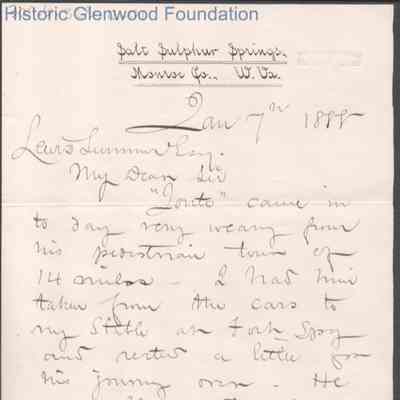 Historic Glenwood Foundation
Salt Sulphur Springs,
Monroe Co., W. Va.
Jan 7th 1888
Lewis Summers Esq.
My Dear Sir
"Jonte" came in
to day very weary from
his pedestrian tour of
14 miles - I had him
taken from the cars to
my Stable at Fork Spg
and rested a little for
his journey over. He